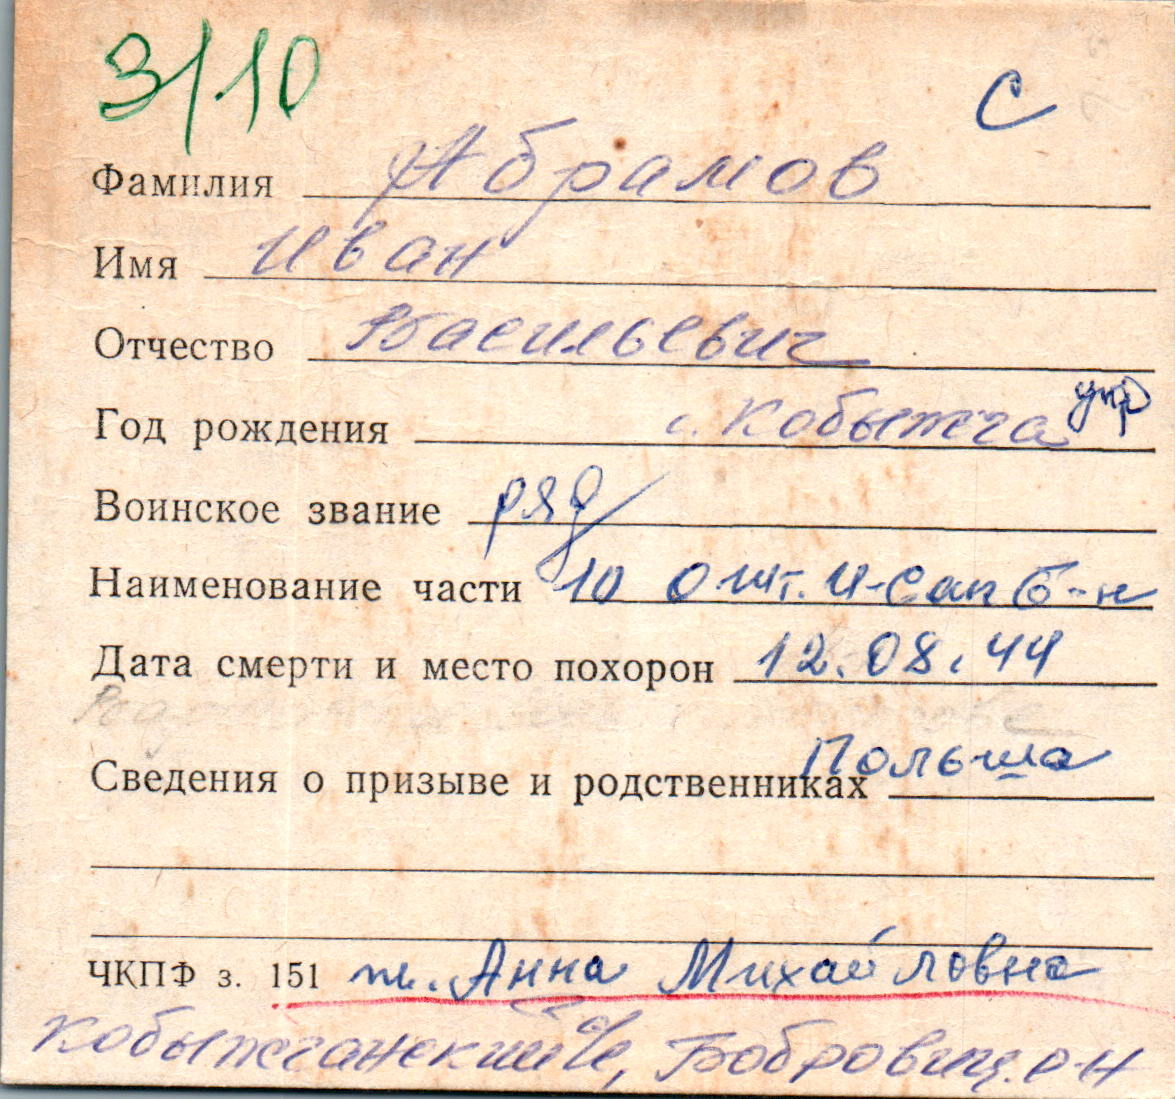 3/10
С
Фамилия Абрамов
Имя Иван
Отчество Васильевич
укр
Год рождения с. Кобыжча
Воинское звание ряд
Наименование части 10 О шт. и-сап б-н
Дата смерти и место похорон 12.08.44
Польша
Сведения о призыве и родственниках
ЧКПФ з. 151 ж. Анна Михайловна
Кобыжчанский с/с, Бобровиц. р-н